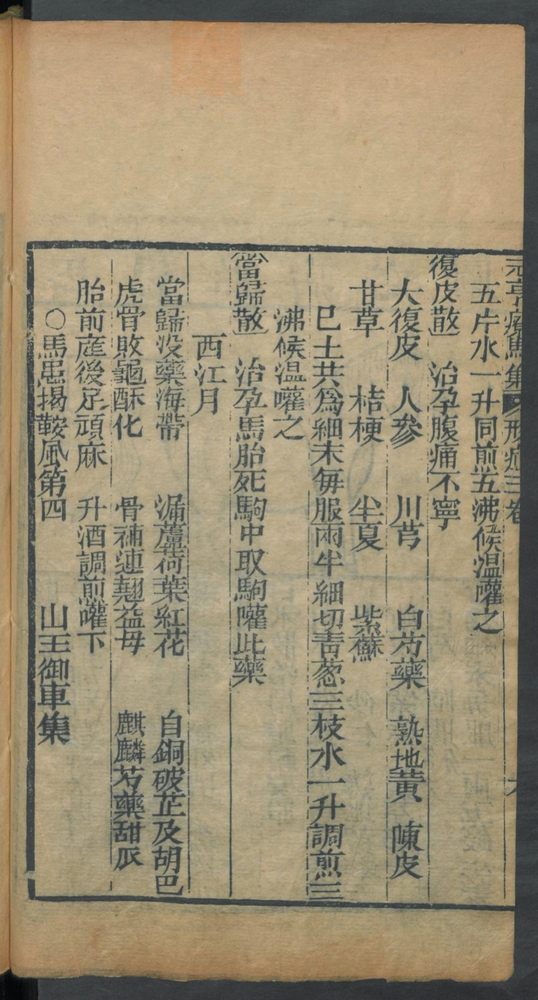 元亨療馬集 形症三卷
五片水一升同煎五沸候温嚾之
復皮散 治孕腹痛不寧
大復皮 人參 川芎 白芍藥 熟地黄 陳皮
甘草 桔梗 半夏 紫蘇
已上共爲細末每服兩半細切青葱三枝水一升調煎三
沸候温嚾之
當歸散 治孕馬胎死駒中取駒嚾此藥
西江月
當歸没藥海帶 漏蘆荷葉紅花 自銅破芷及胡巴
虎骨敗龜酥化 骨補連翹益母 麒麟芍藥甜瓜
胎前産後足頑麻 升酒調煎嚾下
○馬患揭鞍風第四 山王御車集